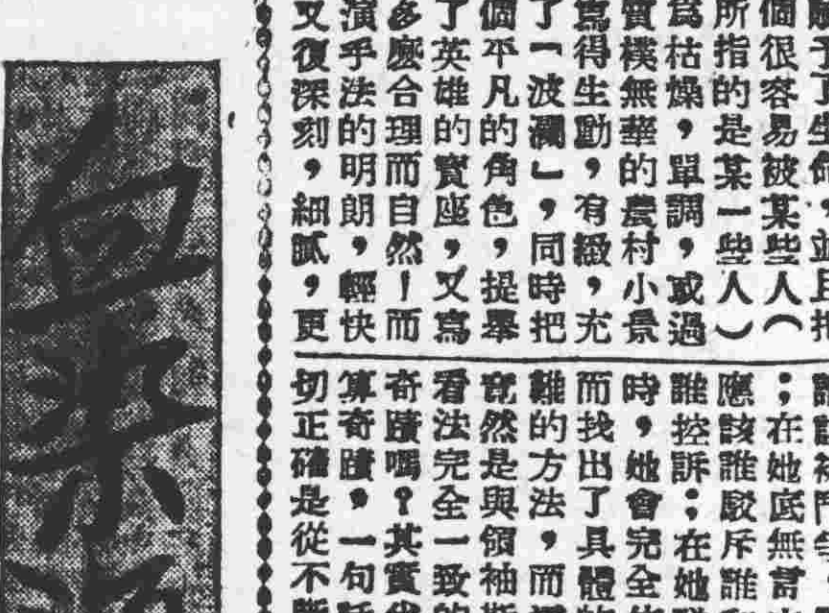 予了生命，並且把
個很容易被某些人（
所指的是某一些人）
為枯燥，單調，或過
質樸無華的農村小景
寫得生動，有緻，充
了「波瀾」，同時把
個平凡的角色，提舉
了英雄的寶座，又寫
多麼合理而自然！而
演手法的明朗，輕快
又復深刻，細膩，更
；在她底無言
應該誰駁斥誰
誰控訴；在她
時，她會完全
而找出了具體
難的方法，而
竟然是與領袖
看法完全一致的
奇蹟嗎？其實
算奇蹟，一句話
切正確是從不斷